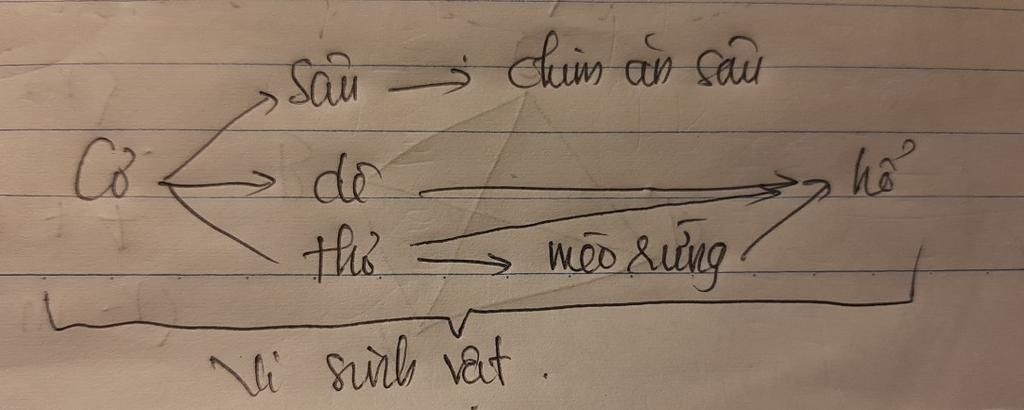 sâu → chim ăn sâu
Cỏ → dê → hổ
thỏ → mèo rừng
Vi sinh vật.